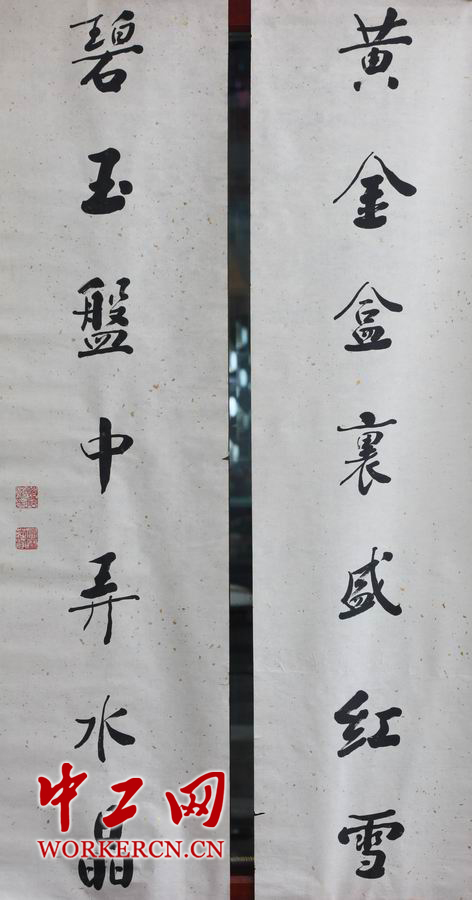 黄金盒裏盛红雪
碧玉盤中弄水晶
中工网
WORKERCN.CN